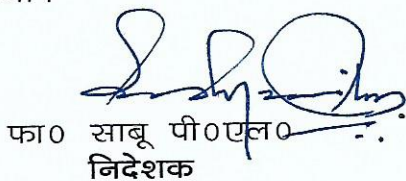 फा० साबू पी०एल०
निदेशक